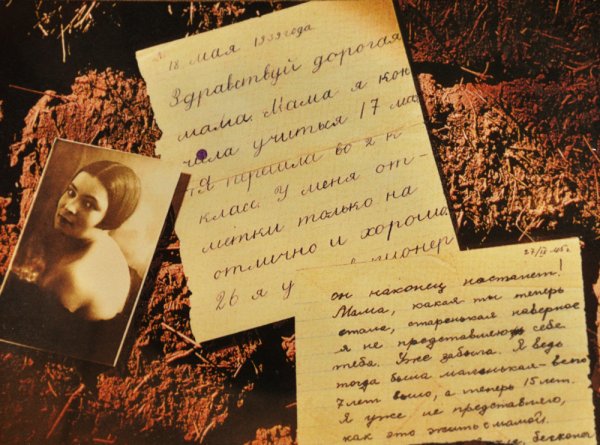 18 мая 1939 года
Здравствуй дорогая
мама. Мама я кон
чила учиться 17 мая
Я перешла во 2 й
класс. У меня от-
метки только на
отлично и хорошо.
26 я у
27/IV 45 г.
он наконец настанет!
Мама, какая ты теперь
стала, старенькая наверное
я не представляю себе
тебя. Уже забыла. Я ведь
тогда была маленькая - всего
7 лет было, а теперь 15 лет.
Я уже не представляю,
как это жить с мамой.